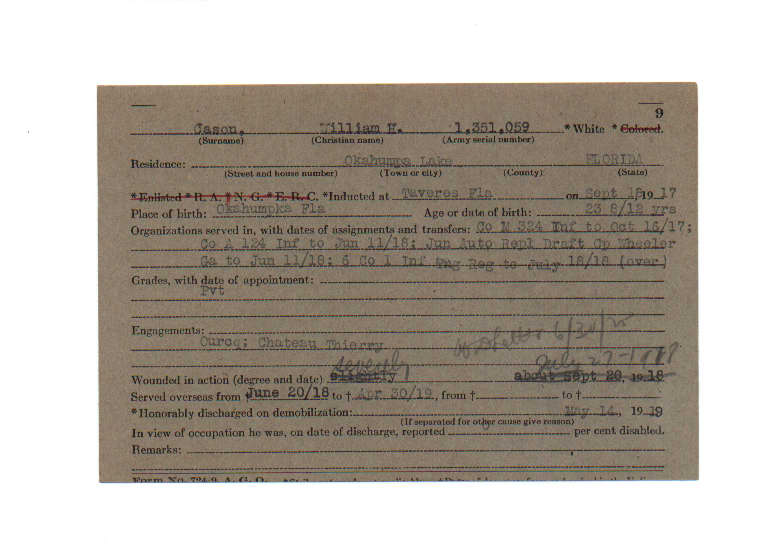 9
Cason, William H. 1,351,059 * White * Colored.
(Surname) (Christian name) (Army serial number)
Residence: Okahumpa Lake FLORIDA
(Street and house number) (Town or city) (County) (State)
* Enlisted * R. A. * N. G. * E. R. C. * Inducted at Tavares Fla on Sept 18 19 17
Place of birth: Okahumpka Fla Age or date of birth: 23 8/12 yrs
Organizations served in, with dates of assignments and transfers: Co M 324 Inf to Oct 16/17;
Co A 124 Inf to Jun 11/18; Jun Auto Repl Draft Cp Wheeler
Ga to Jun 11/18; 6 Co 1 Inf Tng Reg to July 18/18 (over)
Grades, with date of appointment:
Pvt
Engagements:
Ourcq; Chateau Thierry 6/30/25
severely July 27-1918
Wounded in action (degree and date) slightly about Sept 20, 19 18
Served overseas from † June 20/18 to † Apr 30/19, from † to †
* Honorably discharged on demobilization: May 14, 19 19
(If separated for other cause give reason)
In view of occupation he was, on date of discharge, reported per cent disabled.
Remarks:
Form No. 724-9, A. G. O.